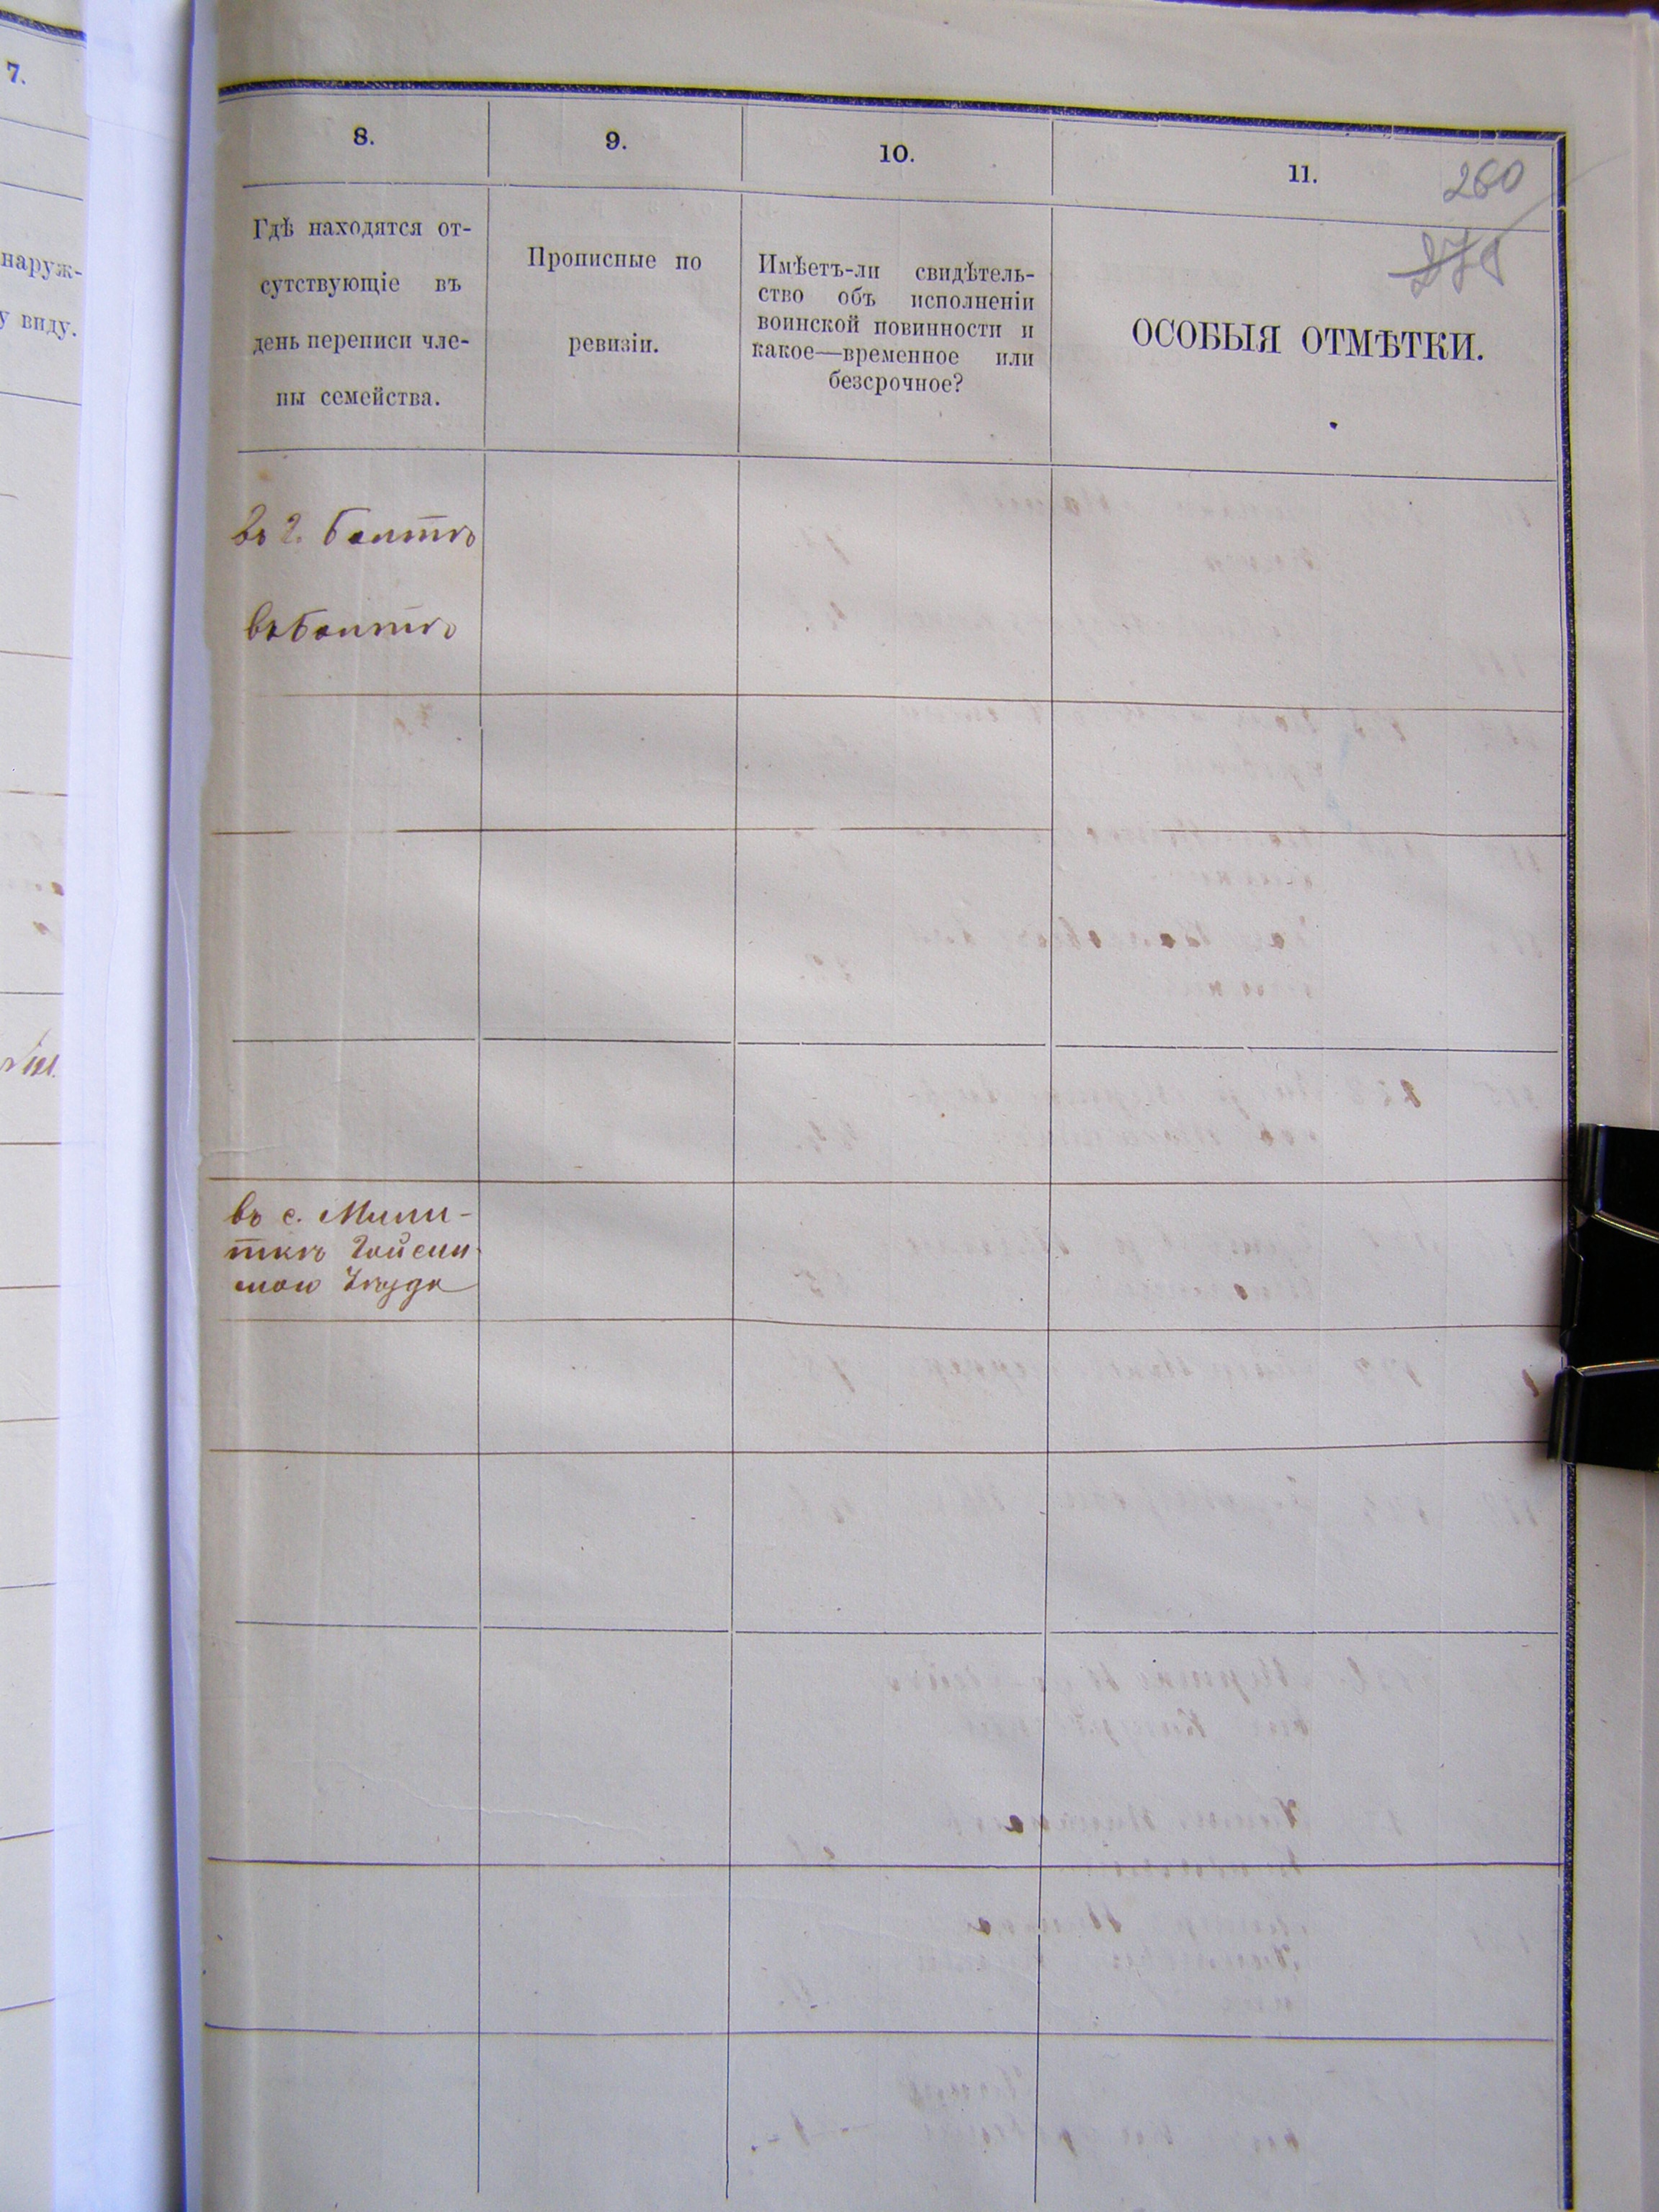 7.
наруж-
у виду.
8.
9.
10.
11.
260
Гдѣ находятся от-
сутствующіе въ
день переписи чле-
ны семейства.
Прописные по
ревизіи.
Имѣетъ-ли свидѣтель-
ство объ исполненіи
воинской повинности и
какое—временное или
безсрочное?
ОСОБЫЯ ОТМѢТКИ.
въ г. Балтѣ
въ Балтѣ
въ с.
Гайсин-
уѣзда